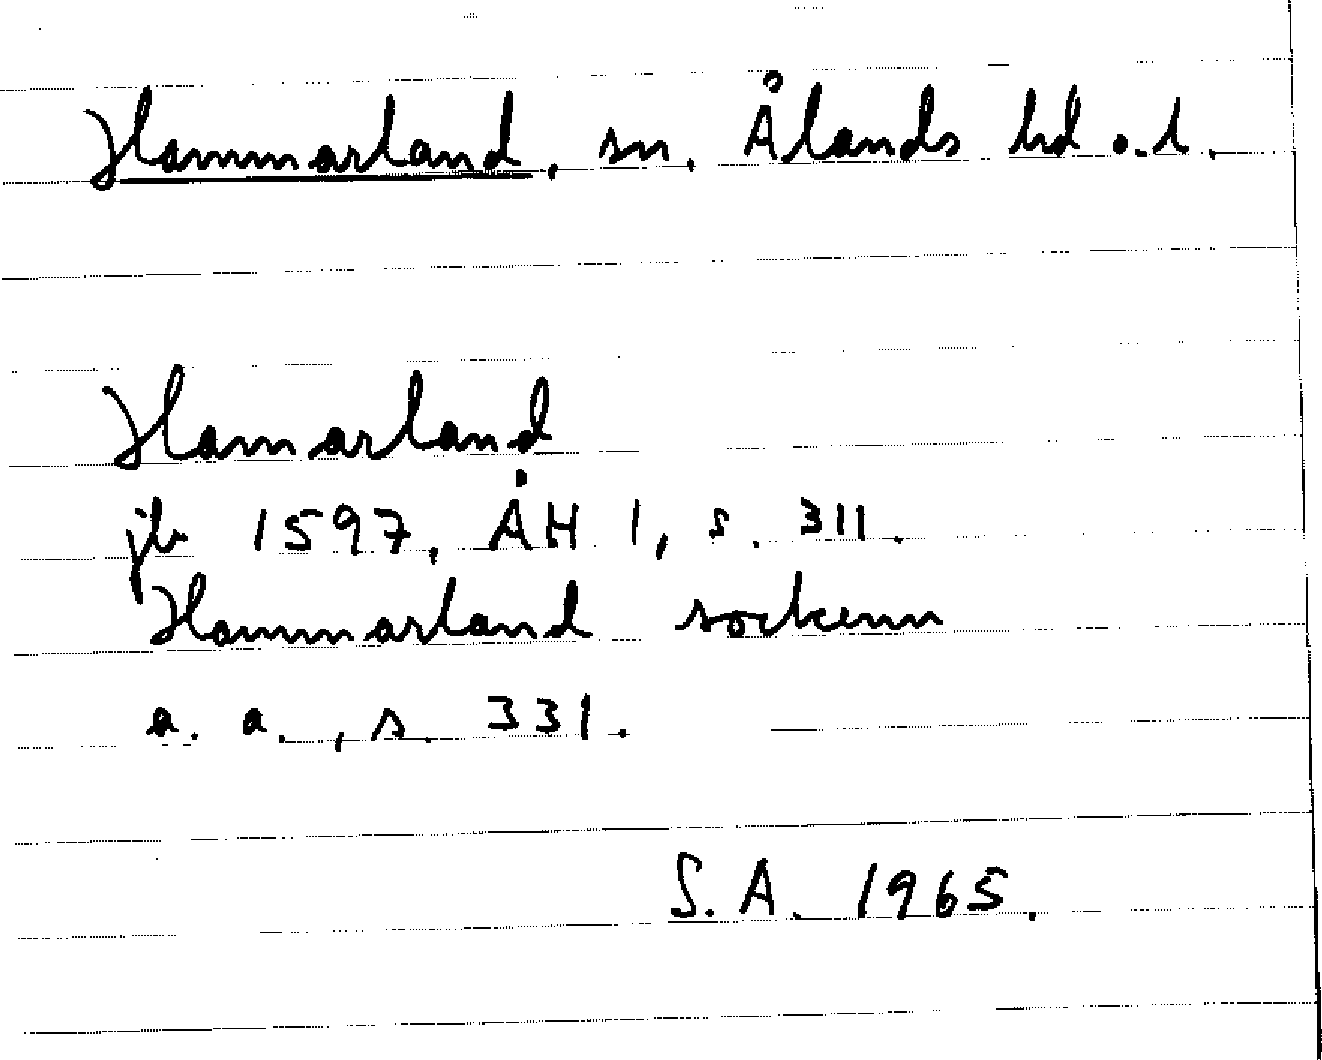 Hammarland, sn, Ålands hd o. l.
Hamarland
jb 1597, ÅH 1, s. 311.
Hammarland sockenn
a. a., s. 331.
S.A. 1965.